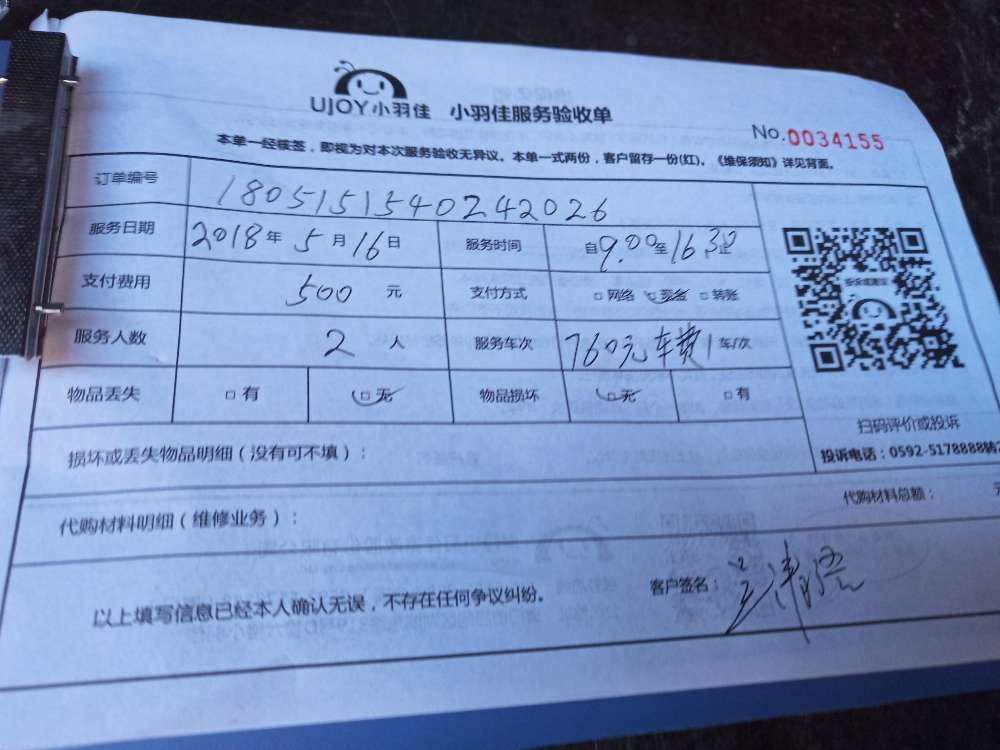 UJOY小羽佳 小羽佳服务验收单
No.0034155
本单一经核签，即视为对本次服务验收无异议。本单一式两份，客户留存一份(红)。《维保须知》详见背面。
订单编号 180515154024202​6
服务日期 2018年5月16日 服务时间 自9.00至16.30止
支付费用 500元 支付方式 □网络 □现金 □转账
服务人数 2人 服务车次 760元车费1车/次
物品丢失 □有 □无 物品损坏 □无 □有
扫码评价或投诉
投诉电话：0592-5178888转
损坏或丢失物品明细（没有可不填）：
代购材料明细（维修业务）： 代购材料总额： 元
以上填写信息已经本人确认无误，不存在任何争议纠纷。 客户签名：